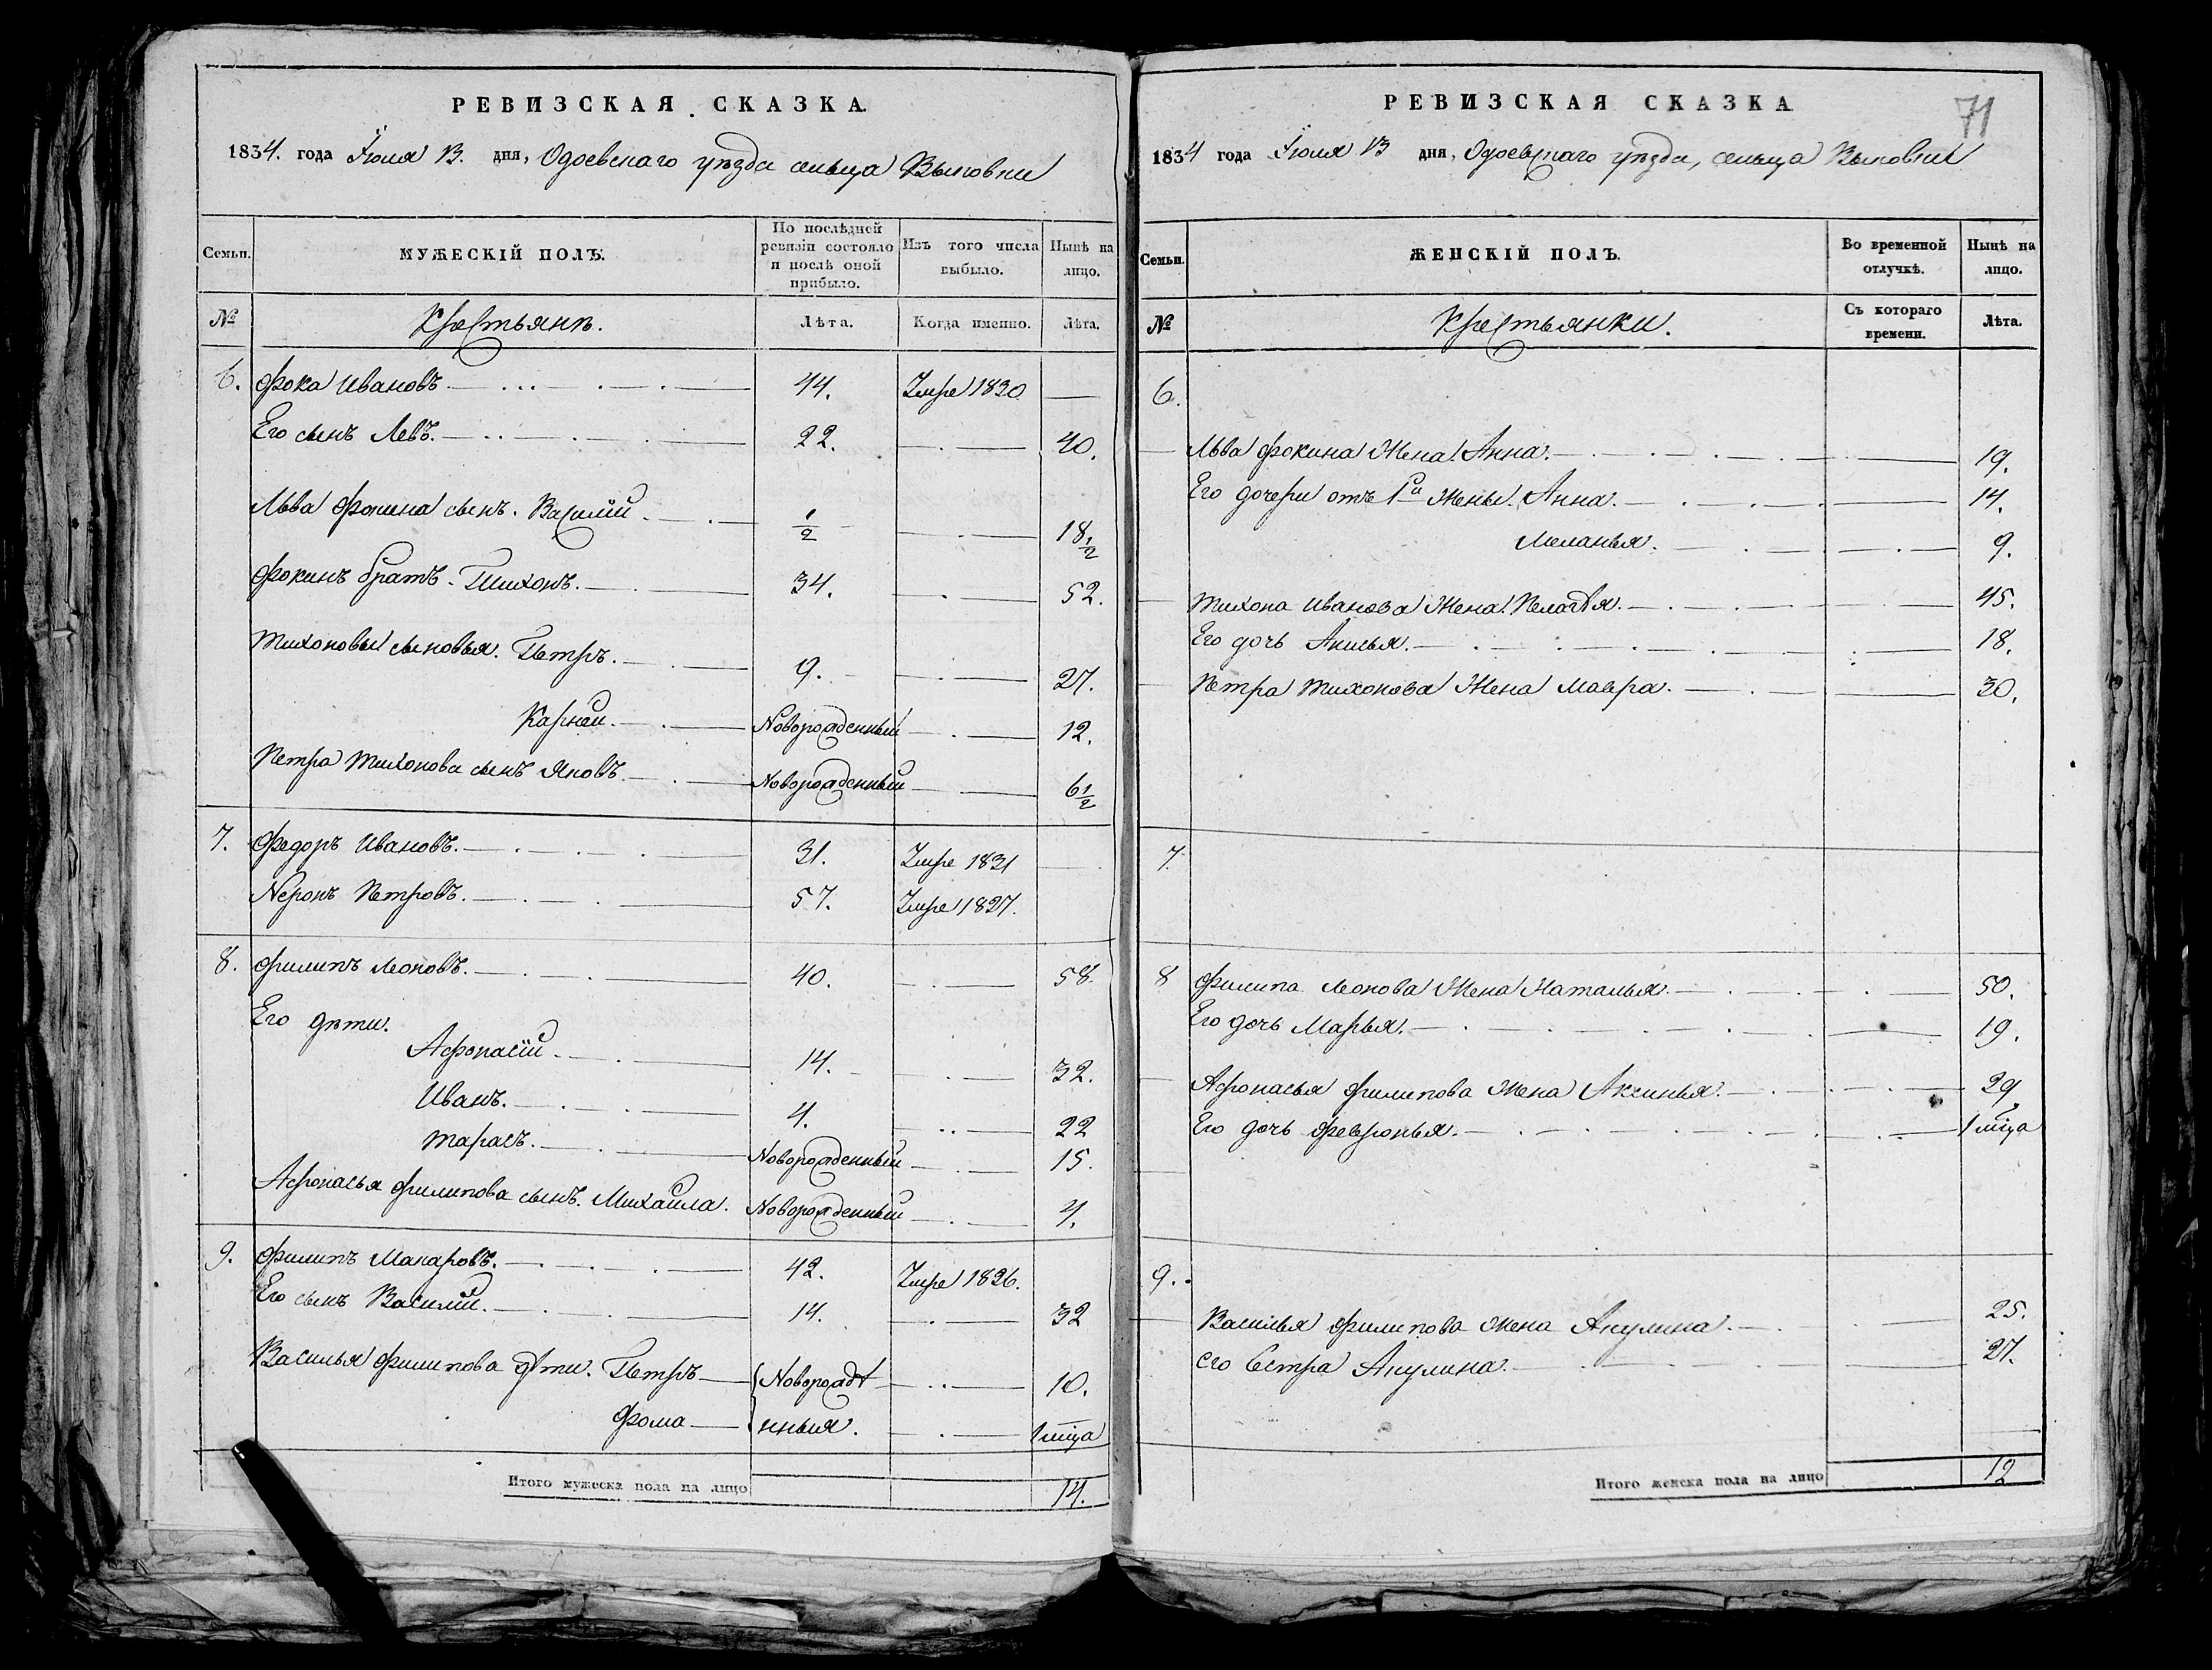 РЕВИЗСКАЯ СКАЗКА.
1834. года Іюля 13. дня, Одоевскаго уѣзда сельца
Семьи. МУЖЕСКІЙ ПОЛЪ. По послѣдней ревизіи состояло и послѣ оной прибыло. Изъ того числа выбыло. Нынѣ на лицо.
№ Крестьянѣ. Лѣта. Когда именно. Лѣта.
6. Фока Ивановъ. 44. Умре 1830
Его сынъ Левъ. 22. 40.
Льва Фокина сынъ. Василій. 1/2 18 1/2
Фокинъ братъ. Тихонъ. 34. 52.
Тихоновы сыновья. Петръ. 9. 27.
Карней. Новорожденный 12.
Петра Тихонова сынъ Яковъ. Новорожденный 6 1/2
7. Федоръ Ивановъ. 31. Умре 1831
Неронъ Петровъ. 57. Умре 1827.
8. Филипъ Леоновъ. 40. 58.
Его дѣти.
Афонасій. 14. 32.
Иванъ. 4. 22
Тарасъ. Новорожденный 15.
Афонасья Филипова сынъ. Михайла. Новорожденный 4.
9. Филипъ Макаровъ. 42. Умре 1826.
Его сынъ Василій. 14. 32
Василья Филипова дѣти. Петръ Новорождѣ 10.
Фома нныя. 1 мѣца
Итого мужеска пола на лицо 14.
71
РЕВИЗСКАЯ СКАЗКА
1834 года Іюля 13 дня, Одоевскаго уѣзда, сельца
Семьи. ЖЕНСКІЙ ПОЛЪ. Во временной отлучкѣ. Нынѣ на лицо.
№ Крестьянки. Съ котораго времени. Лѣта.
6.
Льва Фокина Жена. Анна. 19.
Его дочери отъ 1й Жены. Анна. 14.
Меланья. 9.
Тихона Иванова Жена. Пелагѣя. 45.
Его дочь Акилья. 18.
Петра Тихонова Жена Мавра. 30.
7.
8 Филипа Леонова Жена Наталья. 50.
Его дочь Марья. 19.
Афонасья Филипова Жена Аксинья. 29
Его дочь Февронья. 1 мѣца
9.
Василья Филипова жена Акулина. 25.
его Сестра Акулина. 27.
Итого женска пола на лицо 12